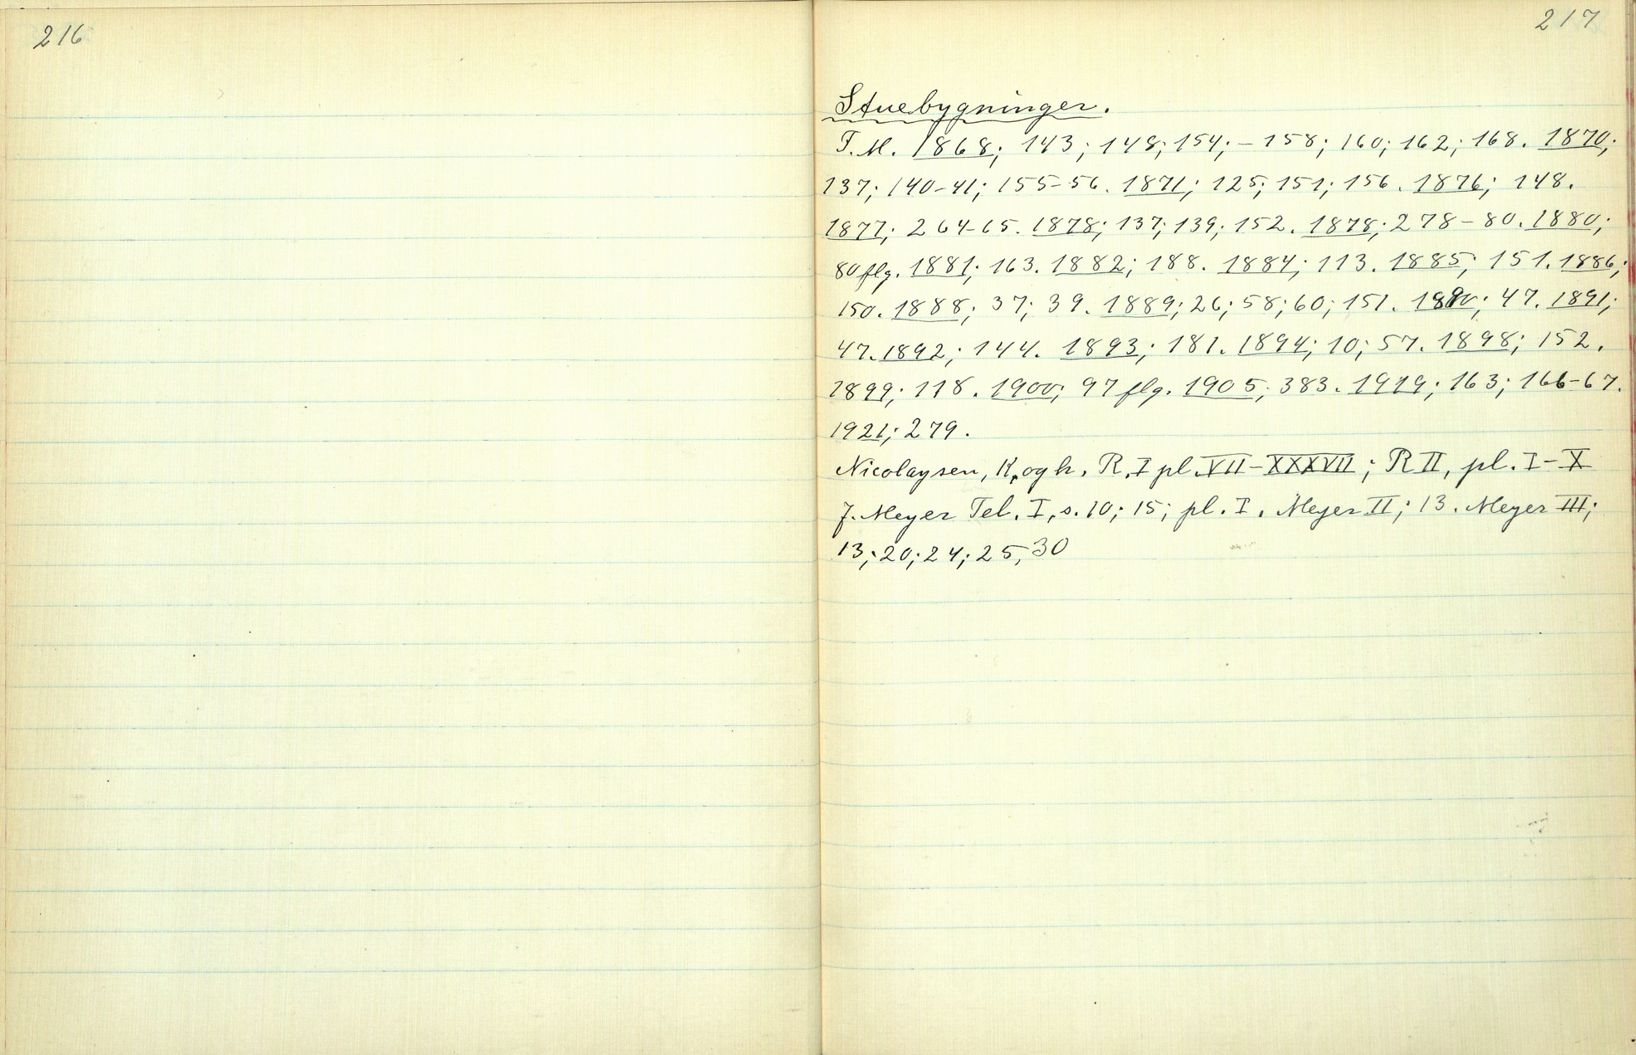 216
217
Stuebygninger.
F. M. 1868; 143; 148; 154; - 158; 160; 162; 168. 1870;
137; 140-41; 155-56. 1871; 125; 151; 156. 1876; 148.
1877; 264-65. 1878; 137; 139; 152. 1878; 278-80. 1880;
80 flg. 1881; 163. 1882; 188. 1884; 113. 1885; 151. 1886;
150. 1888; 37; 39. 1889; 26; 58; 60; 151. 1890; 47. 1891;
47. 1892; 144. 1893; 181. 1894; 10; 57. 1898; 152.
1899; 118. 1900; 97 flg. 1905; 383. 1919; 163; 166-67.
1921; 279.
Nicolaysen, K. og h. R. I pl. VII - XXXVII; R II, pl. I - X
J. Meyer Tel. I, s. 10; 15; pl. I. Meyer II; 13. Meyer III;
13; 20; 24; 25, 30